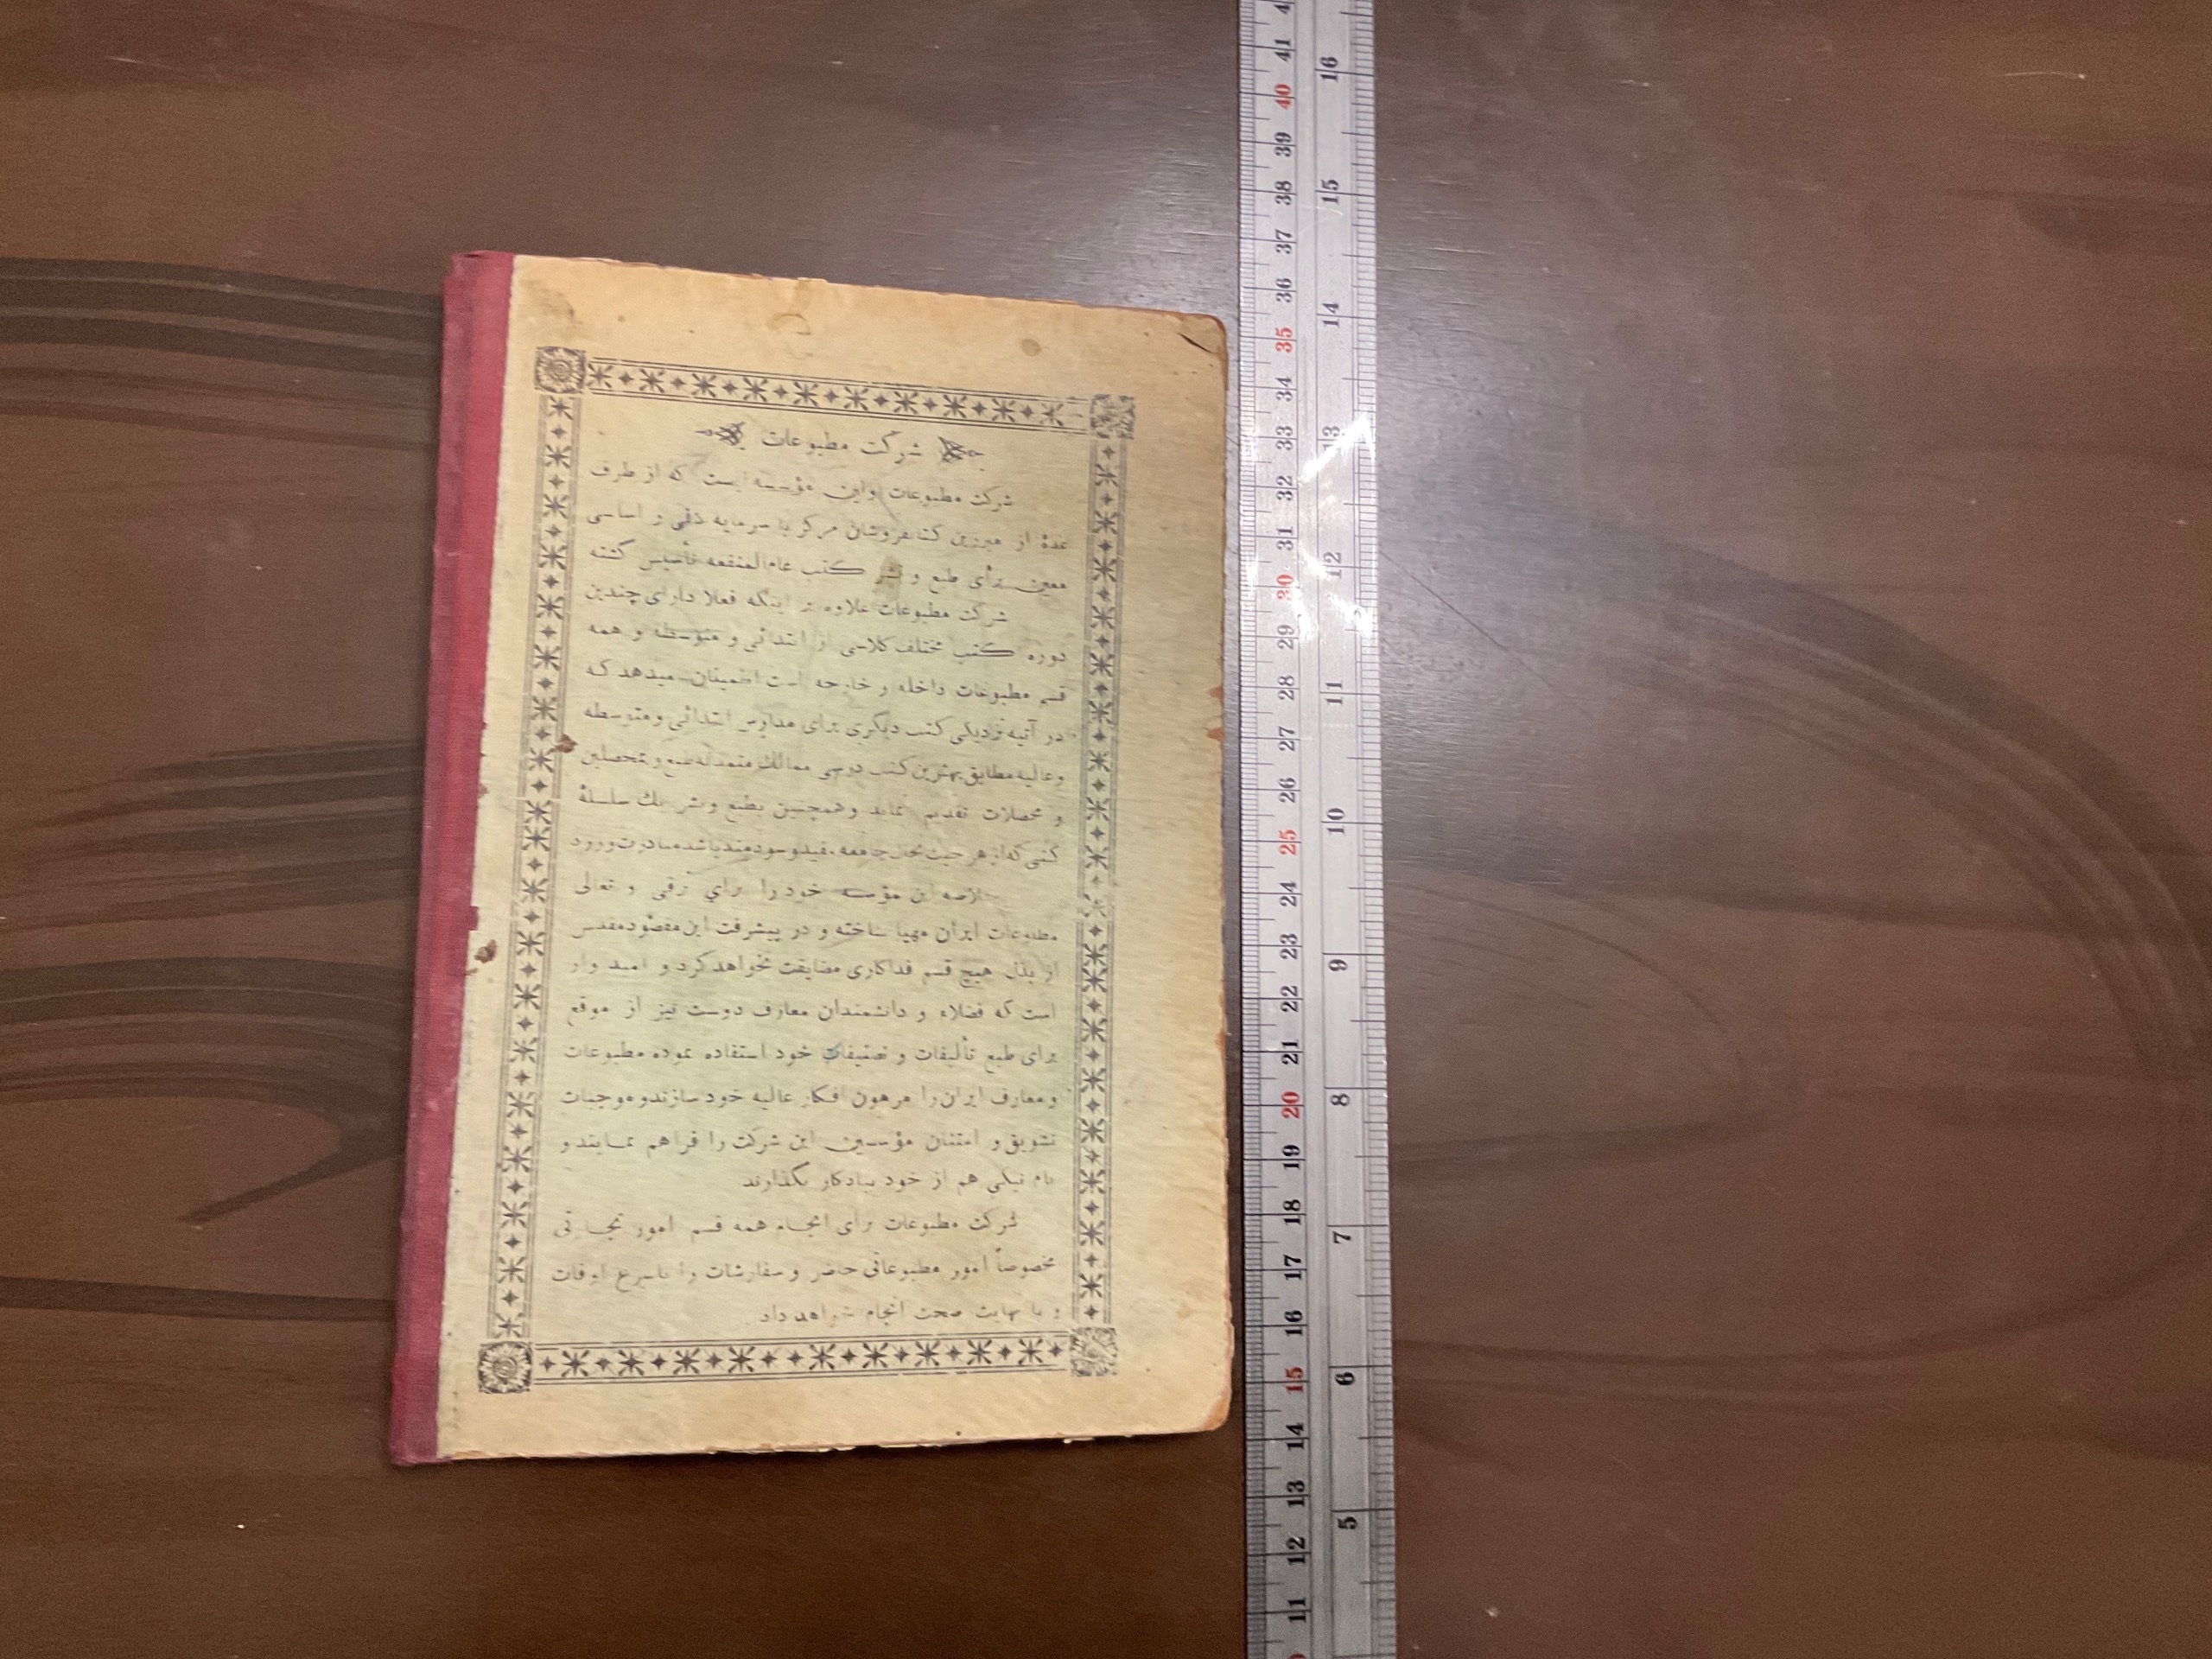 شرکت مطبوعات
شرکت مطبوعات اولین مؤسسه ایست که از طرف
عدهٔ از مبرزین کتابفروشان مرکز با سرمایه و اساسی
معین برای طبع و نشر کتب عام‌المنفعه تأسیس گشته
شرکت مطبوعات علاوه بر اینکه فعلا دارای چندین
دوره کتب مختلف کلاسی از ابتدائی و متوسطه و همه
قسم مطبوعات داخله و خارجه است اطمینان میدهد که
در آتیه نزدیکی کتب دیگری برای مدارس ابتدائی و متوسطه
و عالیه مطابق بهترین کتب درسی ممالک متمدنه طبع و بمحصلین
و محصلات تقدیم نماید و همچنین بطبع و نشر یک سلسلهٔ
کتبی که از هر حیث بحال جامعه مفید و سودمند باشد مبادرت ورزد
خلاصه این مؤسسه خود را برای ترقی و تعالی
مطبوعات ایران مهیا ساخته و در پیشرفت این مقصود مقدس
از بذل هیچ قسم فداکاری مضایقت نخواهد کرد و امید وار
است که فضلاء و دانشمندان معارف دوست نیز از موقع
برای طبع تألیفات و تصنیفات خود استفاده نموده مطبوعات
و معارف ایران را مرهون افکار عالیه خود سازند و موجبات
تشویق و امتنان مؤسسین این شرکت را فراهم نمایند و
نام نیکی هم از خود بیادگار بگذارند
شرکت مطبوعات برای انجام همه قسم امور تجارتی
مخصوصاً امور مطبوعاتی حاضر و سفارشات را باسرع اوقات
و با نهایت صحت انجام خواهد داد
41
40
39
38
37
36
35
34
33
32
31
30
29
28
27
26
25
24
23
22
21
20
19
18
17
16
15
14
13
12
11
16
15
14
13
12
11
10
9
8
7
6
5